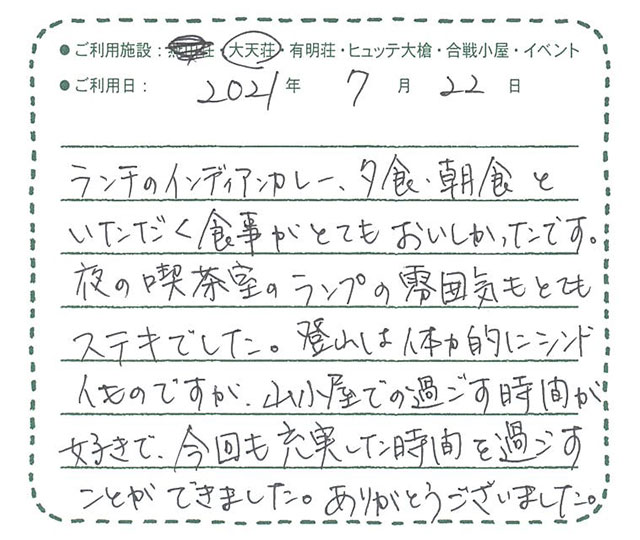 ● ご利用施設：燕山荘・大天荘・有明荘・ヒュッテ大槍・合戦小屋・イベント
● ご利用日： 2021 年 7 月 22 日
ランチのインディアンカレー、夕食・朝食と
いただく食事がとてもおいしかったです。
夜の喫茶室のランプの雰囲気もとても
ステキでした。登山は体力的にシンド
イものですが、山小屋での過ごす時間が
好きで、今回も充実した時間を過ごす
ことができました。ありがとうございました。